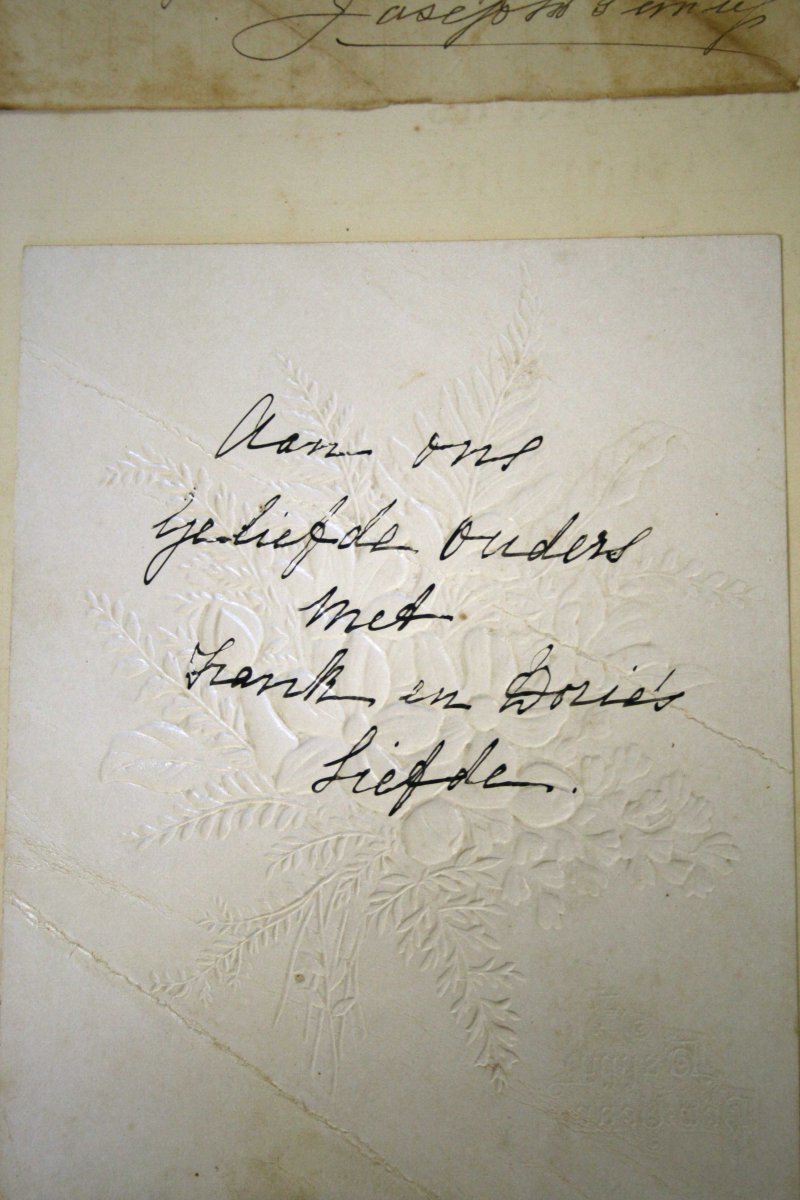 Aan ons
Geliefde Ouders
Met
Frank en Dorie's
Liefde.